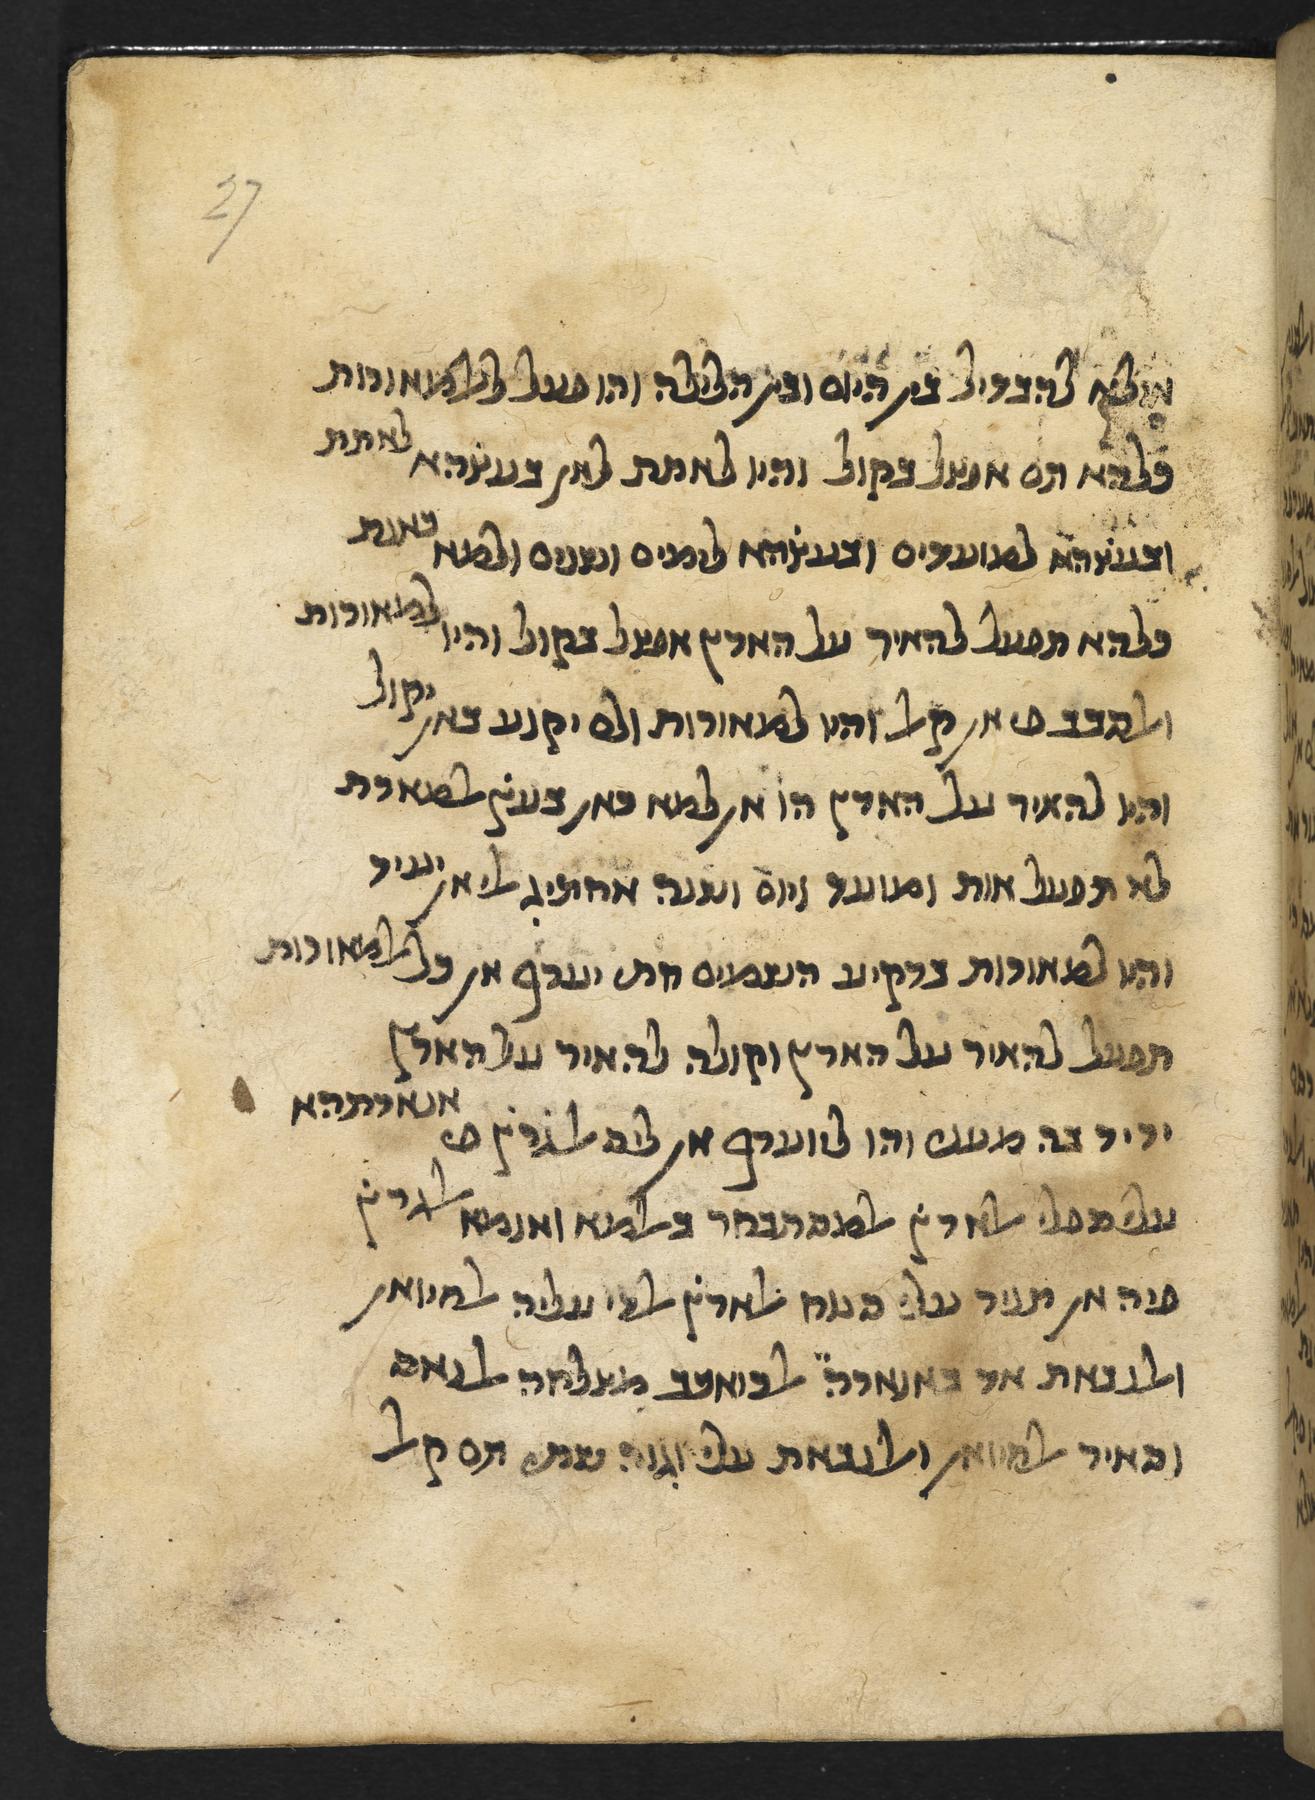 27
אולא להבדיל בין היום ובין הלילה והו פעל ללמאורות
כלהא תם אפצל בקול והיו לאתת לאן בעצהא לאתת
ובעצהא למועדים ובעצהא לימים ושנים ולמא כאנת
כלהא תפעל להאיר על הארץ אפצל בקול והיו למאורות
ואלסבב פי אן קאל והיו למאורות ולם יקנע באן יקול
והיו להאיר על הארץ הו אן למא כאן בעץ אלמארת
לא תפעל אות ומועד ויום ושנה אחתיג אלי אן יעיד
והיו למאורות ברקיע השמים חתי יערף אן כל אלמאורות
תפעל להאיר על הארץ וקולה להאיר על הארץ
יריד בה מעני והו ליוערף אן ליס אלגרץ פי אנארתהא
עלי תפלי אלארץ אלמסתבחר באלמא ואנמא אלגרץ
פיה אן תניר עלי סטח אלארץ אלדי עליה אלחיואן
ואלנבאת אד באנארה̈ אלכואכב מצלחה אלנאס
וסאיר אלחיואן ואלנבאת עלי וגוה שתי תם קאל